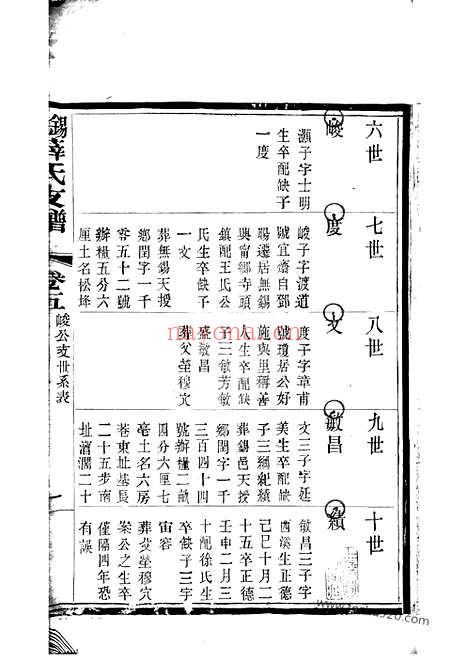 六世
七世
八世
九世
十世
畯
灝子字士明
生卒配缺子
一度
度
畯子字渡道
號宜齋自鄧
陽遷居無錫
興甯鄉寺頭
鎮配王氏公
氏生卒缺子
一文
葬無錫天授
鄉閏字一千
零五十二號
辦糧五分六
厘土名松埄
文
度子字章甫
號瓊居公好
施與里稱善
人生卒配缺
子三敏芳敏
盛敏昌
葬父塋穆穴
敏昌
文三子字廷
美生卒配缺
子三綱紀績
葬錫邑天授
鄉閏字一千
三百四十四
號辦糧二畝
四分六厘七
毫土名六房
巷東址基長
二十五步南
址濶二十
績
敏昌三子字
西溪生正德
己巳十月二
十五卒正德
壬申二月三
十配徐氏生
卒缺子三字
宙容
葬父塋穆穴
案公之生卒
僅隔四年恐
有誤
錫薛氏支譜
卷五
畯公支世系表